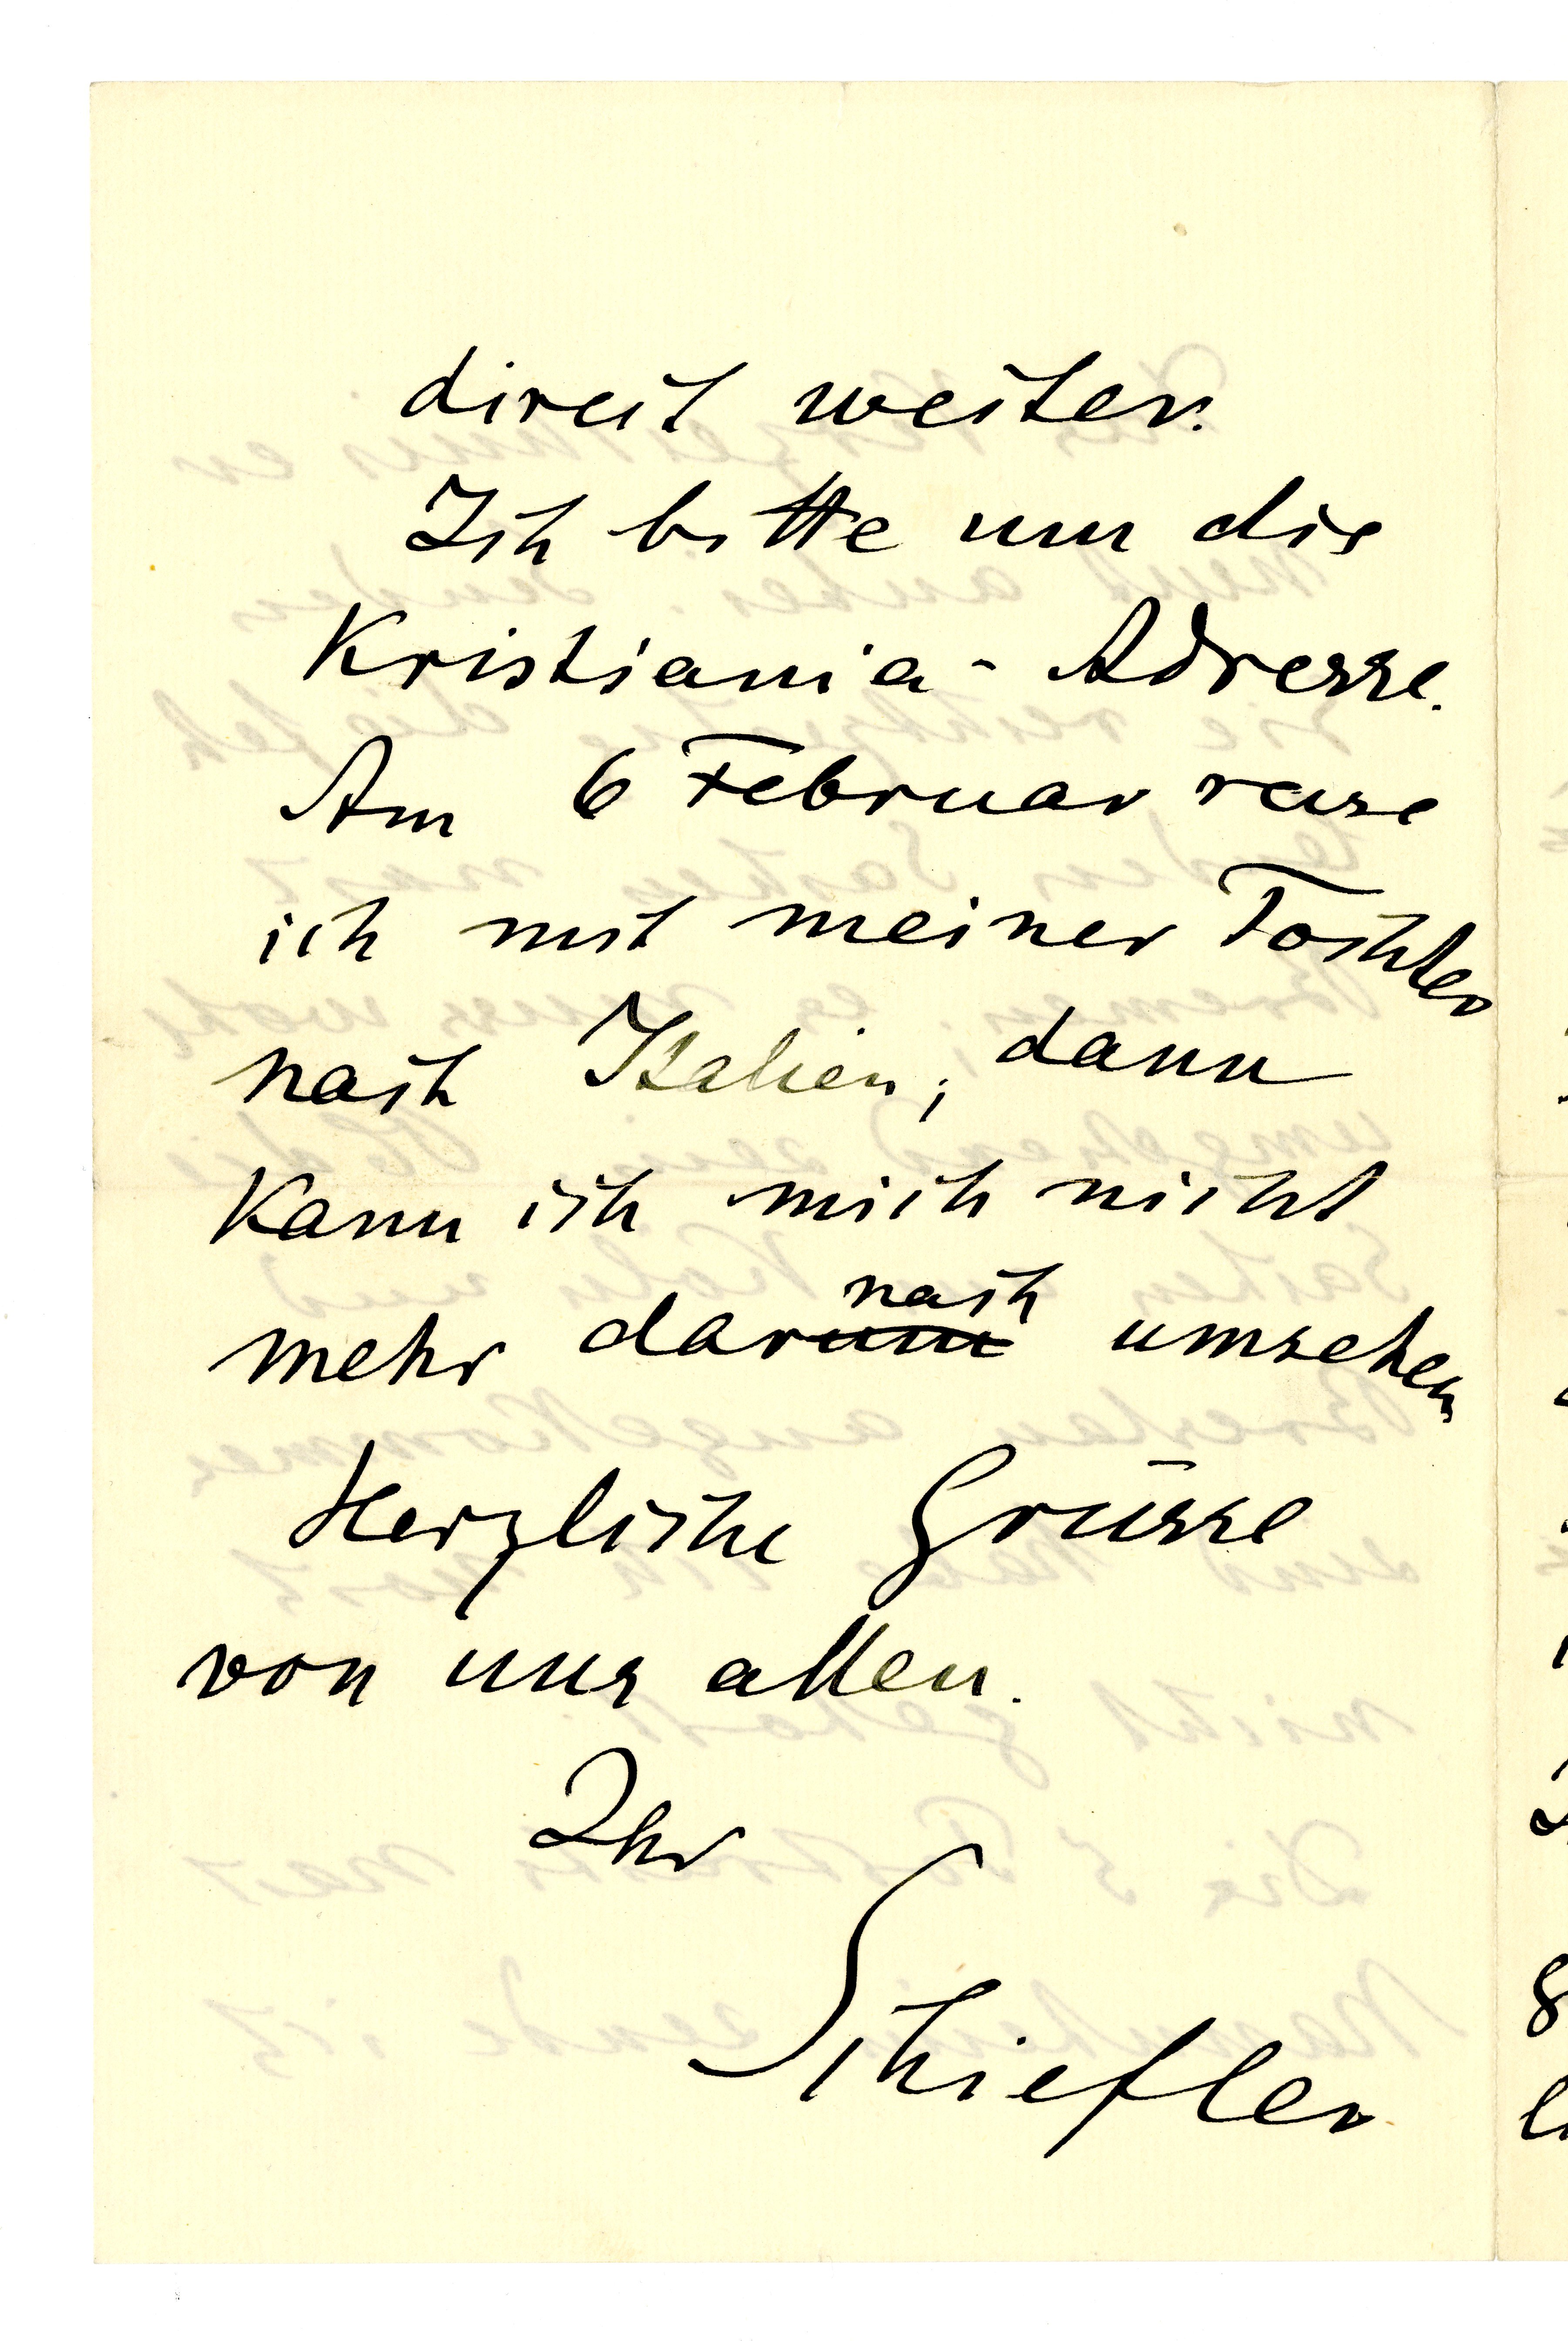 direct weiter.
Ich bitte um die
Kristiania-Adresse.
Am 6 Februar reise
ich mit meiner Tochter
nach Italien; dann
kann ich mich nicht
nach
mehr darum umsehen
Herzliche Grüsse
von uns allen.
Ihr
Schiefler